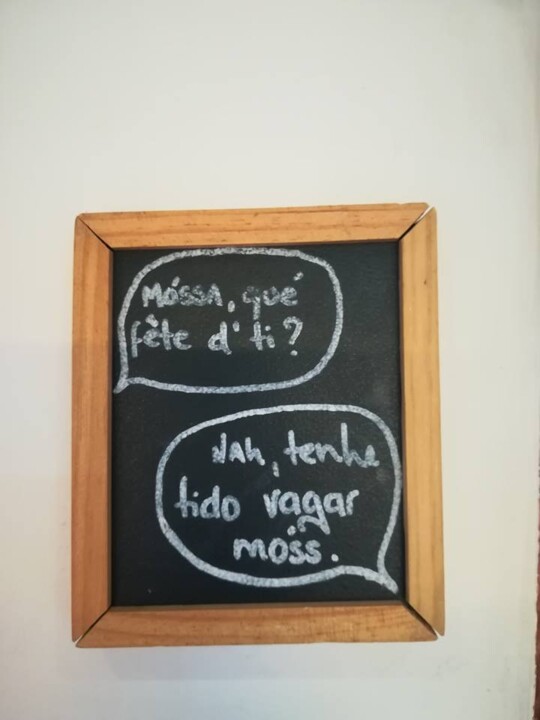 Móssa, qué
fête d' ti?
Nah, tenhe
tido vagar
móss.